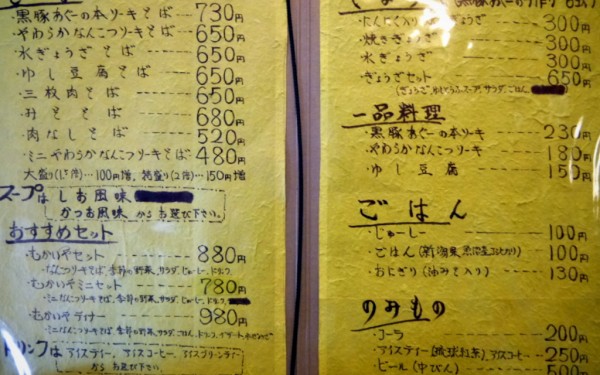 ・黒豚あぐーの本ソーキそば 730円
・やわらかなんこつソーキそば 650円
・水ぎょうざそば 650円
・ゆし豆腐そば 650円
・三枚肉そば 650円
・みそそば 680円
・肉なしそば 520円
・ミニやわらかなんこつソーキそば 480円
大盛り(1.5倍)…100円増、特盛り(2倍)…150円増
スープは しお風味
かつお風味 からお選び下さい。
おすすめセット
・むかいやセット 880円
・なんこつソーキそば、季節の野菜、サラダ、じゅーしー、ドリンク
・むかいやミニセット 780円
・ミニなんこつソーキそば、季節の野菜、サラダ、じゅーしー、ドリンク
・むかいやディナー 980円
・ミニなんこつソーキそば、季節の野菜、サラダ、ごはん、ドリンク、デザート
ドリンクは アイスティー、アイスコーヒー
からお選び下さい。
・にんにく入りぎょうざ 300円
・焼きぎょうざ 300円
・水ぎょうざ 300円
・ぎょうざセット 650円
(ぎょうざ、ゆしどうふスープ、サラダ、ごはん
一品料理
・黒豚あぐーの本ソーキ 230円
・やわらかなんこつソーキ 180円
・ゆし豆腐 150円
ごはん
・じゅーしー 100円
・ごはん(新潟産、魚沼産こしひかり) 100円
・おにぎり(油みそ入り) 130円
のみもの
・コーラ 200円
・アイスティー(琉球紅茶)、アイスコーヒー 250円
・ビール(中びん) 500円